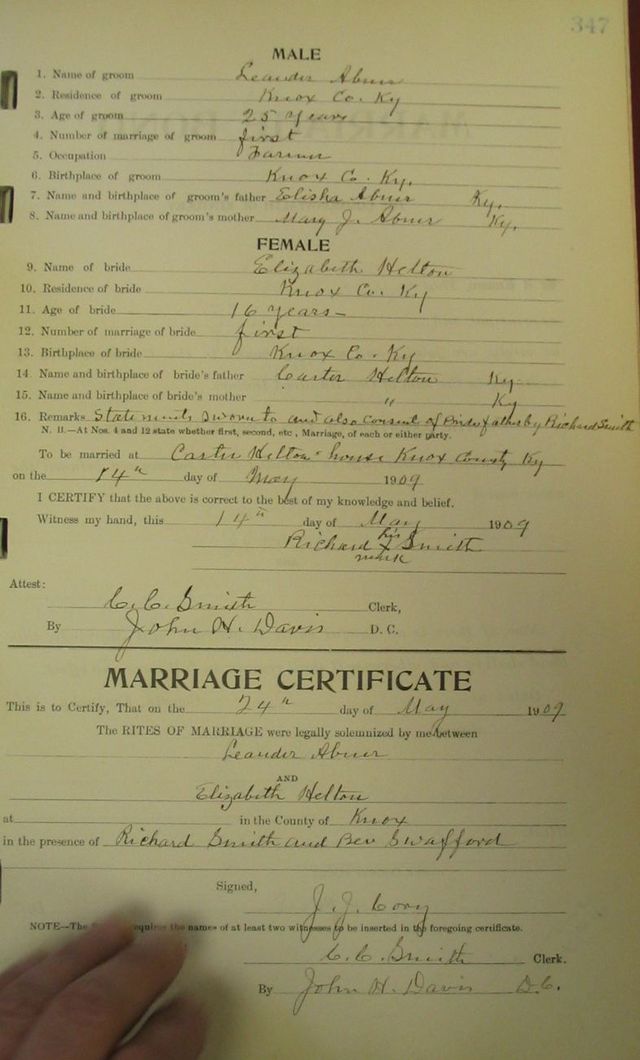 347
MALE
1. Name of groom Leander Abner
2. Residence of groom Knox Co. Ky
3. Age of groom 25 years
4. Number of marriage of groom first
5. Occupation Farmer
6. Birthplace of groom Knox Co. Ky.
7. Name and birthplace of groom's father Elisha Abner Ky.
8. Name and birthplace of groom's mother Mary J. Abner Ky.
FEMALE
9. Name of bride Elizabeth Helton
10. Residence of bride Knox Co. Ky
11. Age of bride 16 years
12. Number of marriage of bride first
13. Birthplace of bride Knox Co. Ky
14 Name and birthplace of bride's father Carter Helton Ky
15. Name and birthplace of bride's mother " Ky
16. Remarks Statements sworn to and also consent of Brides father by Richard Smith
N. B.—At Nos. 4 and 12 state whether first, second, etc., Marriage, of each or either party.
To be married at Carter Helton's house Knox County Ky
on the 14th day of May 1909
I CERTIFY that the above is correct to the best of my knowledge and belief.
Witness my hand, this 14th day of May 1909
his
Richard X Smith
mark
Attest:
C. C. Smith Clerk,
By John H. Davis D. C.
MARRIAGE CERTIFICATE
This is to Certify, That on the 24th day of May 1909
The RITES OF MARRIAGE were legally solemnized by me between
Leander Abner
AND
Elizabeth Helton
at in the County of Knox
in the presence of Richard Smith and Bev Swafford
Signed,
J. J. Cory
NOTE—The requires the names of at least two witnesses to be inserted in the foregoing certificate.
C. C. Smith Clerk.
By John H. Davis D.C.